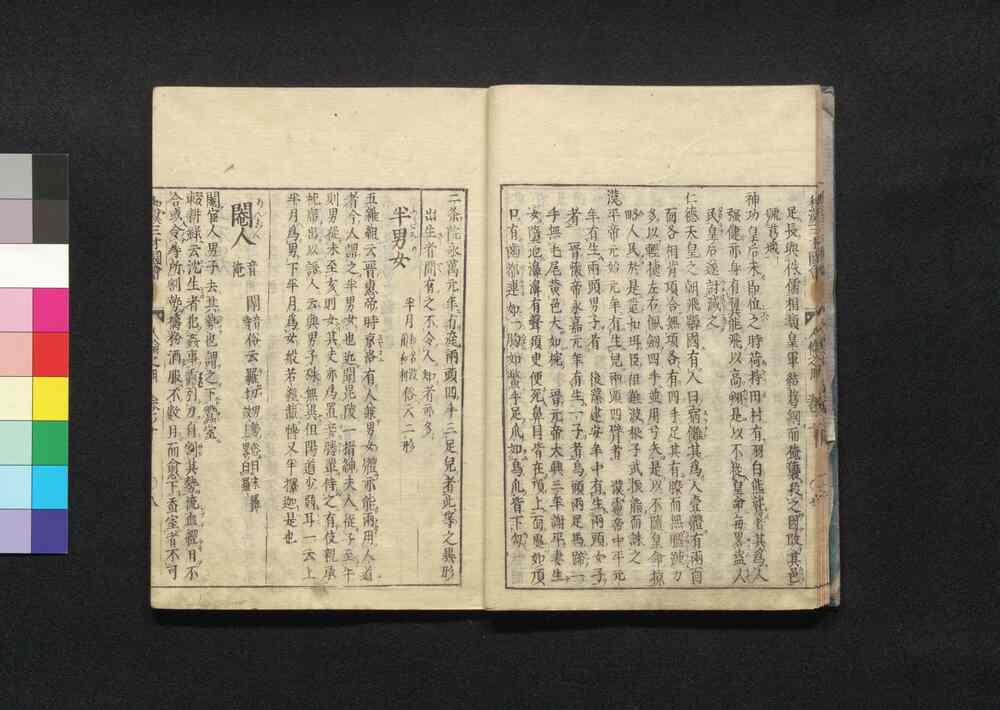 足長與侏儒相類皇軍結葛網而掩襲殺之因改其邑
號葛城
神功皇后未即位之時荷持田村有羽白能鷲者其為人
強健亦身有翼能飛以高翔是以不從皇命毎畧盗人
民皇后遂討滅之
仁德天皇之朝飛驒國有人曰宿儺其為人壹體有兩面
面各相背頂合無項各有四手足其有膝而無膕踵力
多以輕捷左右佩劔四手並用弓矢是以不隨皇命掠
畧人民於是遣和珥臣祖難波根子武振熊而誅之
漢平帝元始元年有生兒兩頭四臂者 漢靈帝中平元
年有生兩頭男子者 後漢建安年中有生兩頭女子
者 晉懷帝永嘉元年有生一子者鳥頭兩足馬蹄一
手無毛尾黄色大如枕 晉元帝太興三年謝平妻生
女墮地濞濞有聲須臾便死鼻目皆在頂上面處如項
口有齒都連如一胸如鼈手足爪如鳥爪皆下勾
二条院永萬元年有産兩頭四手三足兒者此等之異形
出生者間有之不令人知者亦多
半男女
半月 俗云二形
五雜組云晉惠帝時京洛有人兼男女體亦能兩用人道
者今人謂之半男女也近聞毘陵一搢紳夫人從子至午
則男從未至亥則女其夫亦爲置妾媵輩侍之有伎親承
枕席出以語人云與男子殊無異但陽道少弱耳一云上
半月爲男下半月爲女般若經載博叉半擇迦是也
閹人
音淹 俗云羅切
閹宦人男子去其勢也謂之下蠶室
輟耕錄云沈生者犯姦事露引刀自割其勢流血經月不
合或令尋所割勢擣粉酒服不數月而愈下蚕室者不可